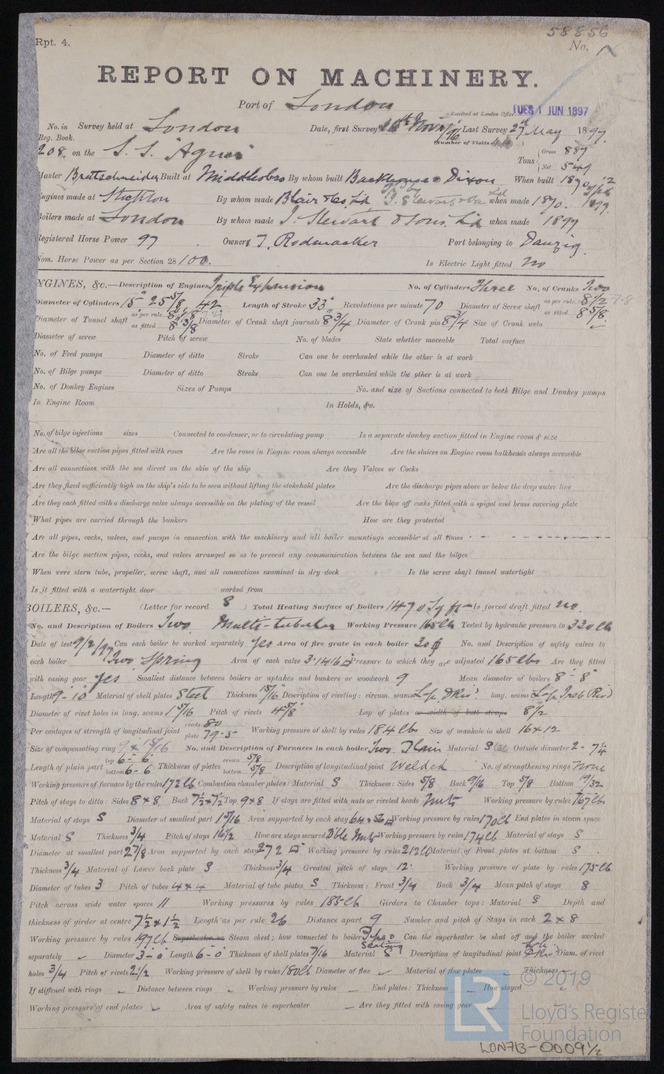 Rpt. 4.
58856
No.
REPORT ON MACHINERY.
Port of London
Received at London Office TUES 1 JUN 1897
No. in Survey held at London Date, first Survey Last Survey 27 May 1897
Reg. Book. Number of Visits
208 on the S.S. "Agnes" Tons Gross 887 Net 549
Master Bretschneider Built at Middlesbro By whom built Backhouse & Dixon When built 1870
Engines made at Stockton By whom made Blair & Co. Ld when made 1890
Boilers made at London By whom made J. Stewart & Sons Ld when made 1897
Registered Horse Power 97 Owners T. Rodenacker Port belonging to Danzig
Nom. Horse Power as per Section 28 100. Is Electric Light fitted no
ENGINES, &c.—Description of Engines Triple Expansion No. of Cylinders Three No. of Cranks Two
Diameter of Cylinders 15" 25 5/8 42 Length of Stroke 33" Revolutions per minute 70 Diameter of Screw shaft as per rule 8 1/2 as fitted 8 5/8
Diameter of Tunnel shaft as per rule as fitted 8 3/8 Diameter of Crank shaft journals 8 3/4 Diameter of Crank pin 8 3/4 Size of Crank webs
Diameter of screw Pitch of screw No. of blades State whether moveable Total surface
No. of Feed pumps Diameter of ditto Stroke Can one be overhauled while the other is at work
No. of Bilge pumps Diameter of ditto Stroke Can one be overhauled while the other is at work
No. of Donkey Engines Sizes of Pumps No. and size of Suctions connected to both Bilge and Donkey pumps
In Engine Room In Holds, &c.
No. of bilge injections sizes Connected to condenser, or to circulating pump Is a separate donkey suction fitted in Engine room & size
Are all the bilge suction pipes fitted with roses Are the roses in Engine room always accessible Are the sluices on Engine room bulkheads always accessible
Are all connections with the sea direct on the skin of the ship Are they Valves or Cocks
Are they fixed sufficiently high on the ship's side to be seen without lifting the stokehold plates Are the discharge pipes above or below the deep water line
Are they each fitted with a discharge valve always accessible on the plating of the vessel Are the blow off cocks fitted with a spigot and brass covering plate
What pipes are carried through the bunkers How are they protected
Are all pipes, cocks, valves, and pumps in connection with the machinery and all boiler mountings accessible at all times
Are the bilge suction pipes, cocks, and valves arranged so as to prevent any communication between the sea and the bilges
When were stern tube, propeller, screw shaft, and all connections examined in dry dock Is the screw shaft tunnel watertight
Is it fitted with a watertight door worked from
BOILERS, &c.— (Letter for record S) Total Heating Surface of Boilers 1490 Sq ft Is forced draft fitted no.
No. and Description of Boilers Two Multi-tubular Working Pressure 165 lb Tested by hydraulic pressure to 330 lb
Date of test 9/2/97 Can each boiler be worked separately yes Area of fire grate in each boiler No. and Description of safety valves to
each boiler Two Spring Area of each valve 3.1416 Pressure to which they are adjusted 165 lbs Are they fitted
with easing gear yes Smallest distance between boilers or uptakes and bunkers or woodwork 9 Mean diameter of boilers 8'-8"
Length 9-10 Material of shell plates Steel Thickness 15/16 Description of riveting: circum. seams Lap D Riv. long. seams Lap Treb Rivd
Diameter of rivet holes in long. seams 1 5/16 Pitch of rivets 4 5/8 Lap of plates or width of butt straps 8 1/2
Per centages of strength of longitudinal joint rivets 80 plate 79.5 Working pressure of shell by rules 184 lb Size of manhole in shell 16 x 12
Size of compensating ring No. and Description of Furnaces in each boiler Two Plain Material S Outside diameter 2-7 1/4
Length of plain part top 6-6 bottom 6-6 Thickness of plates crown 5/8 bottom 5/8 Description of longitudinal joint Welded No. of strengthening rings none
Working pressure of furnace by the rules 172 lb Combustion chamber plates: Material S Thickness: Sides 5/8 Back 9/16 Top 5/8 Bottom 19/32
Pitch of stays to ditto: Sides 8 x 8 Back 7 1/2 x 7 1/2 Top 9 x 8 If stays are fitted with nuts or riveted heads Nuts Working pressure by rules 167 lb
Material of stays S Diameter at smallest part 1 9/16 Area supported by each stay Working pressure by rules 170 lb End plates in steam space
Material S Thickness 3/4 Pitch of stays 16 1/2 How are stays secured Dble Nuts Working pressure by rules 174 lb Material of stays S
Diameter at smallest part 2 7/8 Area supported by each stay 272 Working pressure by rules 212 lb Material of Front plates at bottom S
Thickness 3/4 Material of Lower back plate S Thickness 3/4 Greatest pitch of stays 12 Working pressure of plate by rules 175 lb
Diameter of tubes 3 Pitch of tubes 4 x 4 Material of tube plates S Thickness: Front 3/4 Back 3/4 Mean pitch of stays 8
Pitch across wide water spaces 11 Working pressures by rules 185 lb Girders to Chamber tops: Material S Depth and
thickness of girder at centre 7 1/2 x 1 1/2 Length as per rule 26 Distance apart 9 Number and pitch of Stays in each 2 x 8
Working pressure by rules 197 lb Superheater or Steam chest; how connected to boiler Can the superheater be shut off and the boiler worked
separately Diameter 3-0 Length 6-0 Thickness of shell plates 7/16 Material S Description of longitudinal joint Diam. of rivet
holes 3/4 Pitch of rivets 2 1/2 Working pressure of shell by rules 180 lb Diameter of flue Material of flue plates Thickness
If stiffened with rings Distance between rings Working pressure by rules End plates: Thickness How stayed
Working pressure of end plates Area of safety valves to superheater Are they fitted with easing gear
© 2019
Lloyd's Register
Foundation
LR
LON713-0009 1/2